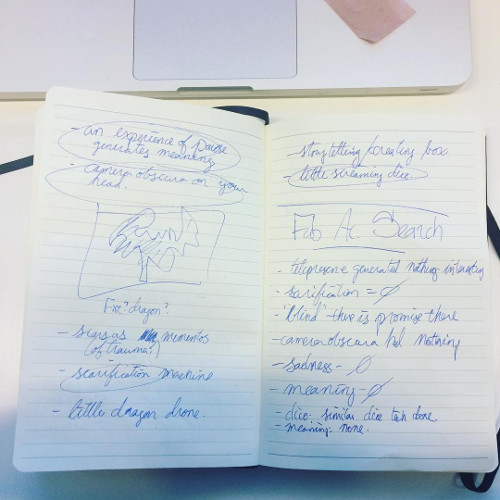 - an experience of pause
generates meaning
- camera obscura on your
head.
Fire? dragon?
- signs as mementos
(of trauma?)
- scarification machine
- little dragon drone.
- storytelling/creating box
- little screaming dice
Fab Ac Search
- telepresence generated nothing interesting
- scarification = ∅
- 'blind' - there is promise there
- camera obscura hd nothing
- sadness - ∅
- meaning - ∅
- dice: similar dice tch done
- meaning: none.